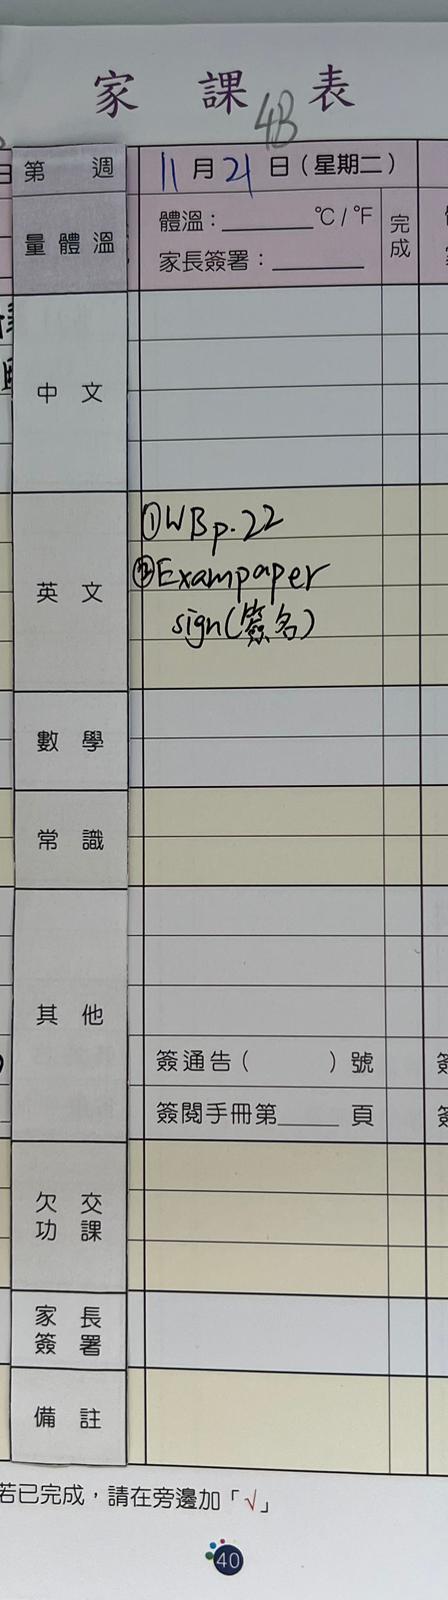 家 課 表
4B
第 週
11月21日(星期二)
量體溫
體溫:________℃/℉
家長簽署:________
完成
中 文
英 文
①WB p.22
②Exampaper
sign(簽名)
數 學
常 識
其 他
簽通告( )號
簽閱手冊第_____頁
欠 交
功 課
家 長
簽 署
備 註
若已完成,請在旁邊加「√」
40